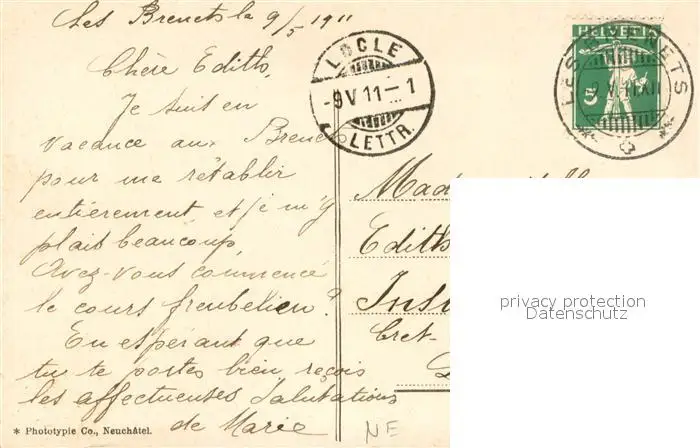 Les Brenets le 9/5 1911
Chère Edith,
Je suis en
vacance aux Brenets
pour me rétablir
entièrement, et je m'y
plais beaucoup,
Avez-vous commencé
le cours freubelien?
En espérant que
tu te portes bien reçois
les affectueuses Salutations
de Marie
* Phototypie Co., Neuchâtel.
NE
LOCLE
-9 V 11 - 1
LETTR.
HELVETIA
5
LES BRENETS
Edith
Cret-
privacy protection
Datenschutz